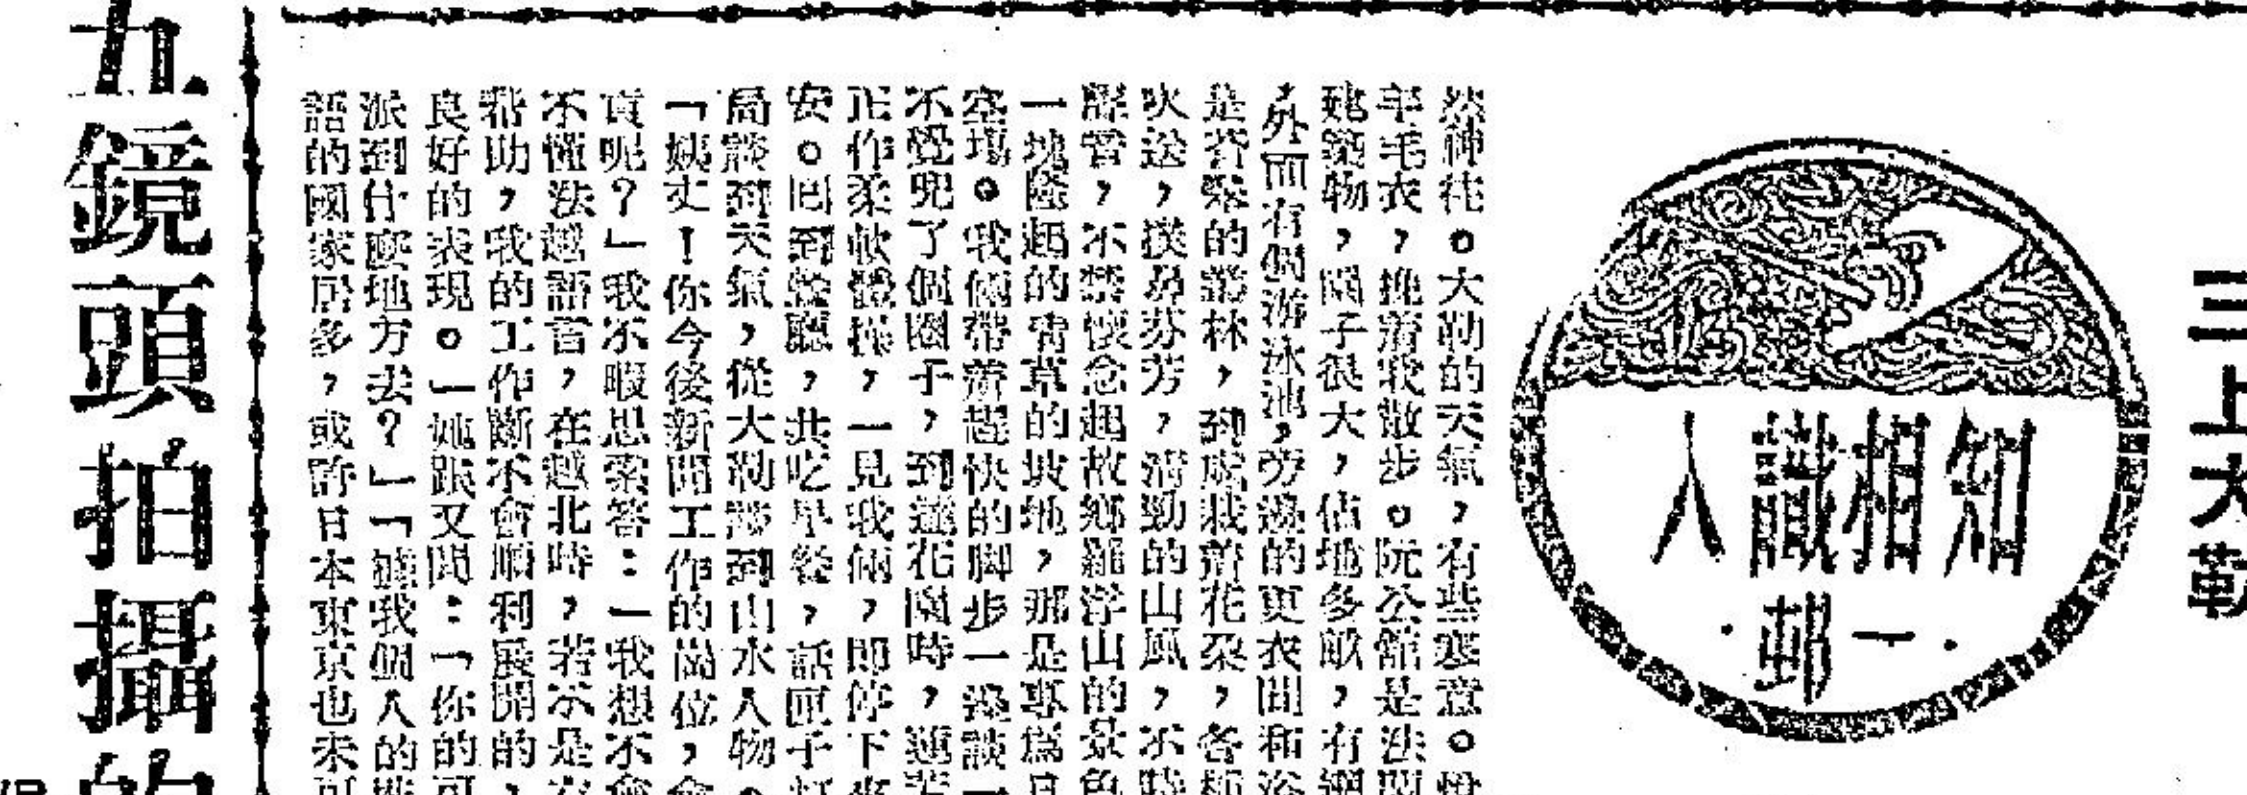 三上大勒
知相識人
一邨
然神往。大勒的天氣,有些寒意。
羊毛衣,挽着我散步。阮公館是法
建築物,園子很大,佔地多畝,有
外面有個游泳池,旁邊的更衣間和浴
是蒼翠的叢林,到處栽着花朵,各種
吹送,撲鼻芬芳,清勁的山風,不時
,不禁懷念起故鄉羅浮山的景色
一塊隆起的青草的坡地,那是專為
。我倆帶着輕快的脚步一邊談一
不覺兜了個圈子,到達花園時,蓮
正作柔軟體操,一見我倆,即停下來
安。回到餐廳,共吃早餐,話匣子打
局談到天氣,從大勒談到山水人物。
「姨丈!你今後新聞工作的崗位,會
責呢?」我不暇思索答:「我想不會
不懂法越語言,在越北時,若不是
幫助,我的工作斷不會順利展開的,
良好的表現。」她跟又問:「你的可
派到什麼地方去?」「據我個人的推
語的國家居多,或許日本東京也未可
五鏡頭拍攝的